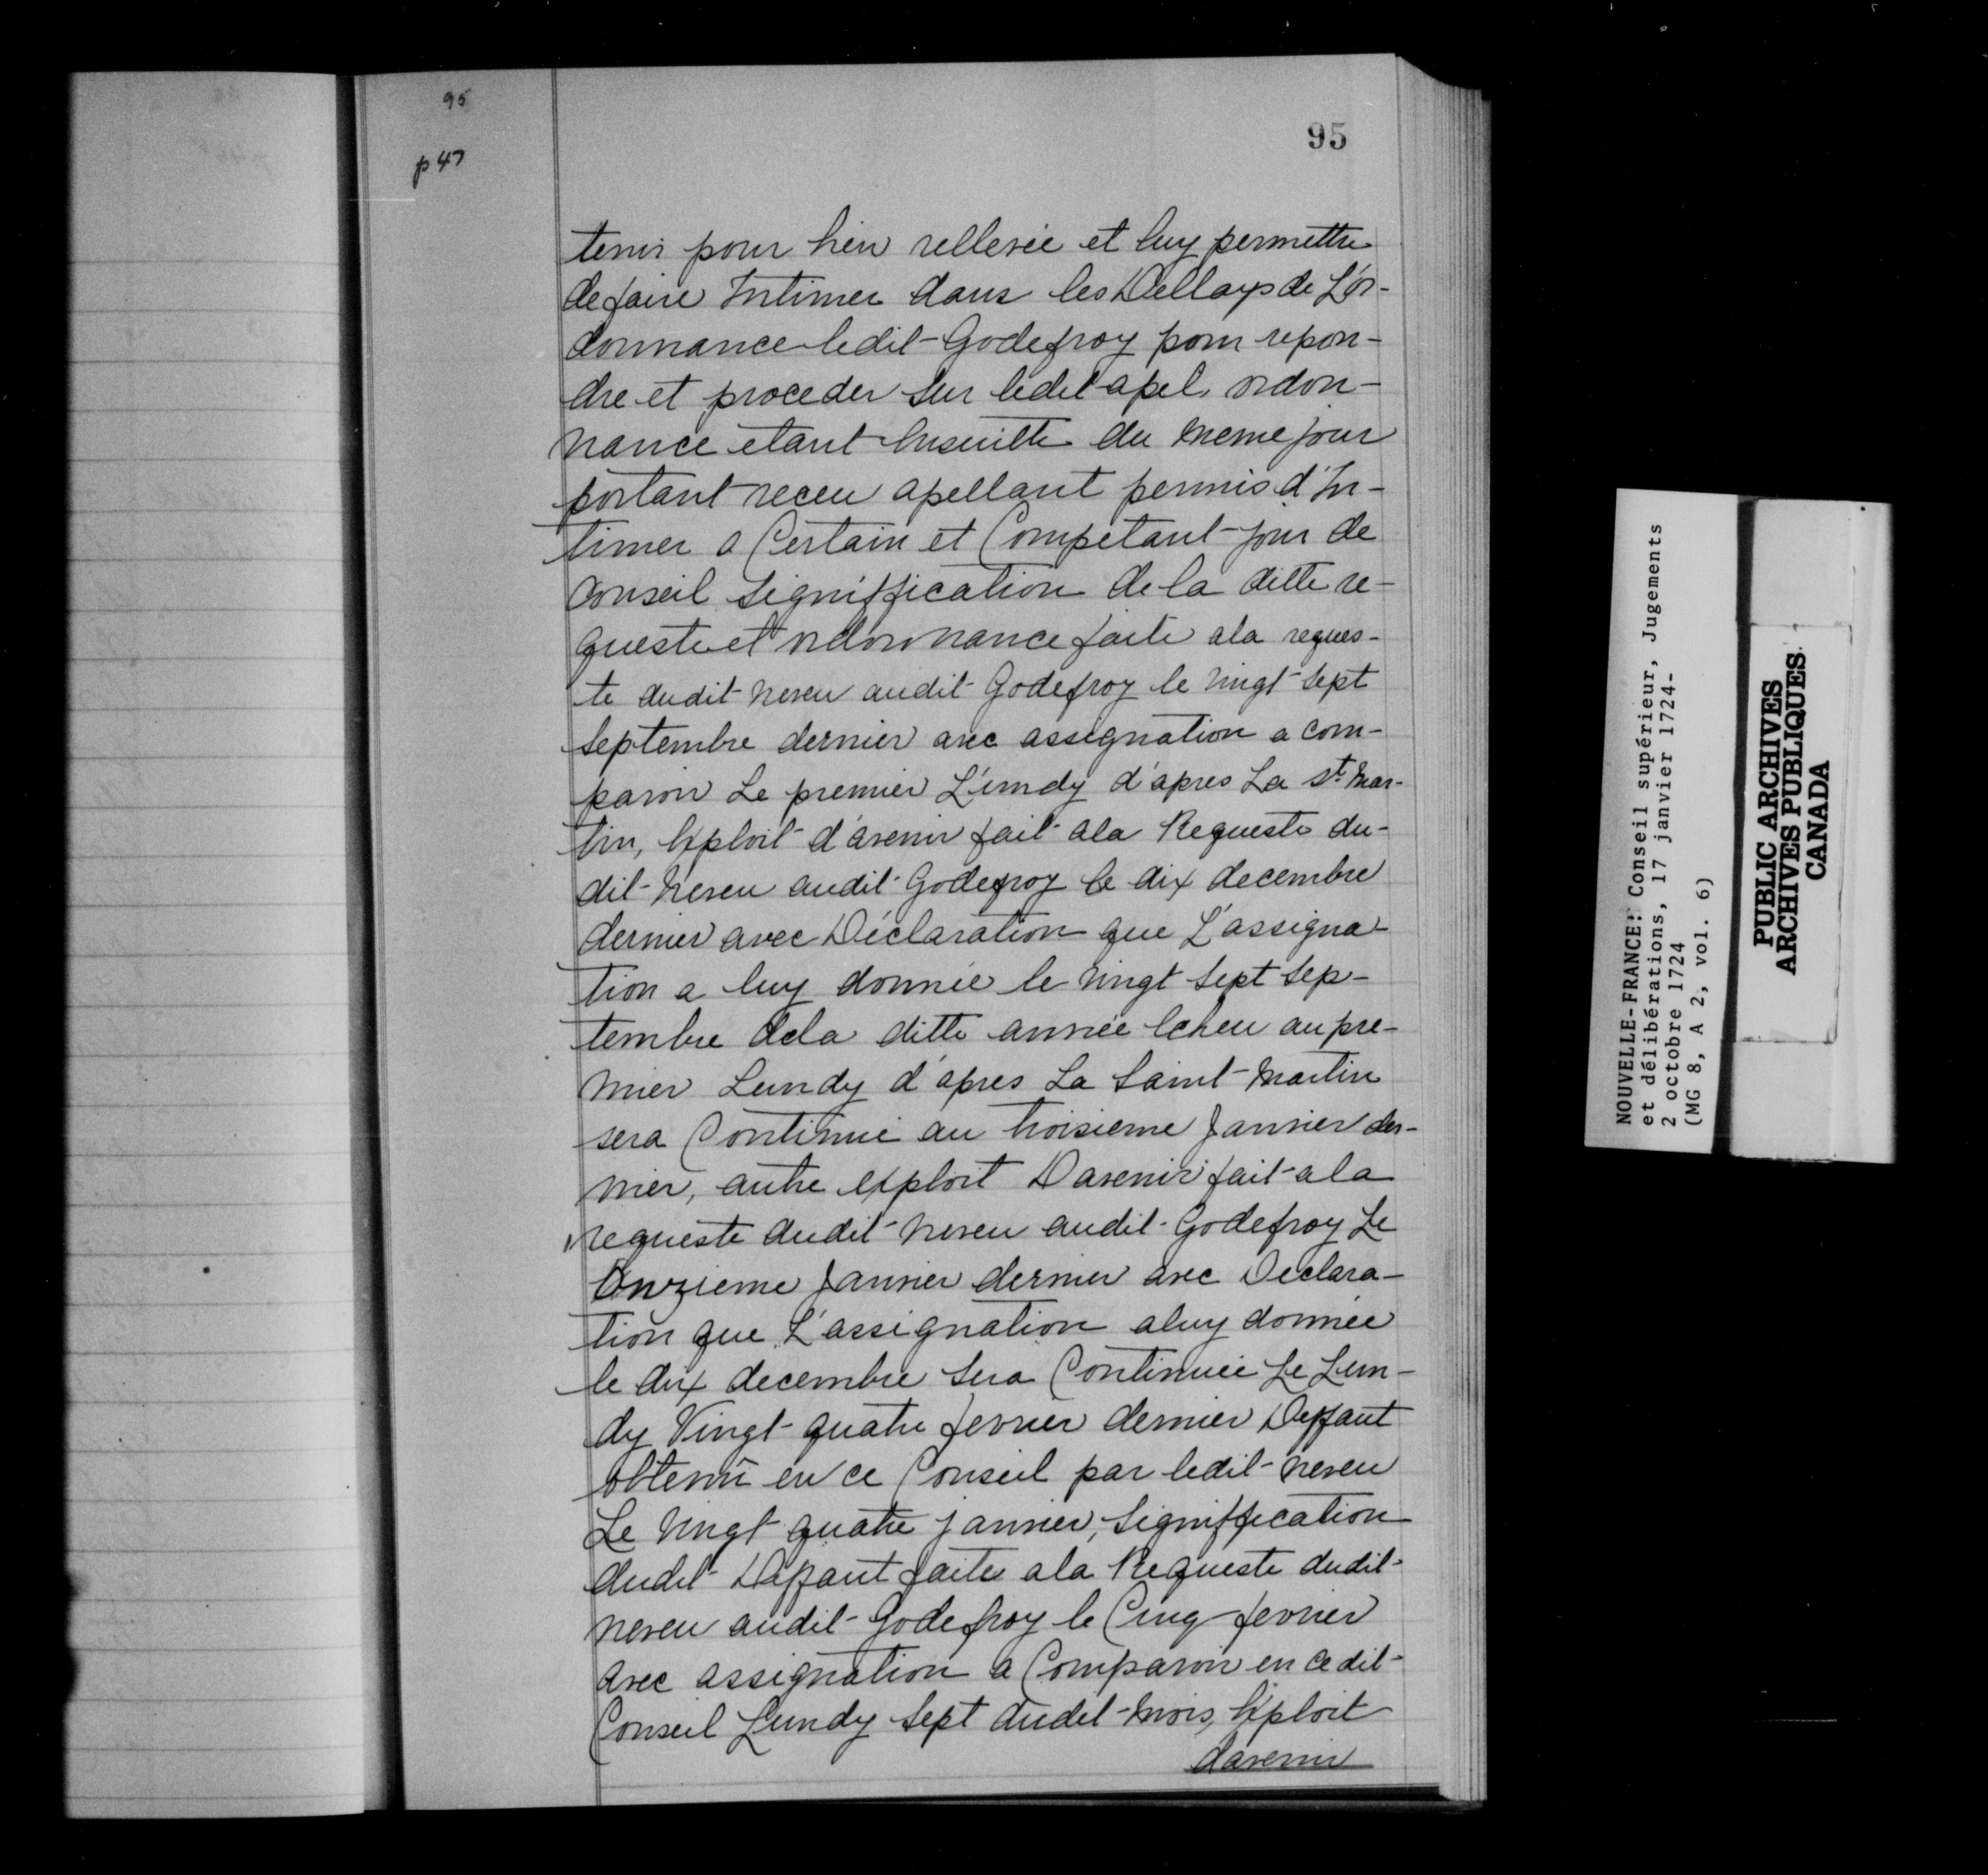 95
p 47
95
tenir pour bien rellevée et luy permettre
de faire Intimer dans les Dellays de L'or-
donnance ledit Godefroy pour repon-
dre et proceder sur ledit apel, ordon-
nance etant Ensuitte du meme jour
portant receu apellant permis d'In-
timer a Certain et Competant jour de
Conseil signiffication de la ditte re-
queste et ordonnance faite a la reques-
te dudit neveu audit Godefroy le vingt sept
septembre dernier avec assignation a com-
paroir Le premier L'undy d'apres La St. Mar-
tin, Exploit d'avenir fait a la Requeste du-
dit neveu audit Godefroy le dix decembre
dernier avec Déclaration que L'assigna-
tion a luy donnée le vingt sept sep-
tembre dela ditte année Echeu au pre-
mier Lundy d'apres La Saint Martin
sera Continué au troisieme Janvier der-
nier, autre exploit Davenir fait a la
requeste dudit neveu audit Godefroy Le
Onzieme Janvier dernier avec Declara-
tion que L'assignation aluy donnée
le dix decembre sera Continuée Le Lun-
dy Vingt quatre fevrier dernier Deffaut
obtenü en ce Conseil par ledit neveu
Le vingt quatre janvier, signiffication
dudit Deffaut faite a la Requeste dudit
neveu audit Godefroy le Cinq fevrier
avec assignation a Comparoir en ce dit
Conseil Lundy sept dudit mois, Exploit
davenir
NOUVELLE-FRANCE: Conseil supérieur, Jugements
et délibérations, 17 janvier 1724-
2 octobre 1724
(MG 8, A 2, vol. 6)
PUBLIC ARCHIVES
ARCHIVES PUBLIQUES
CANADA